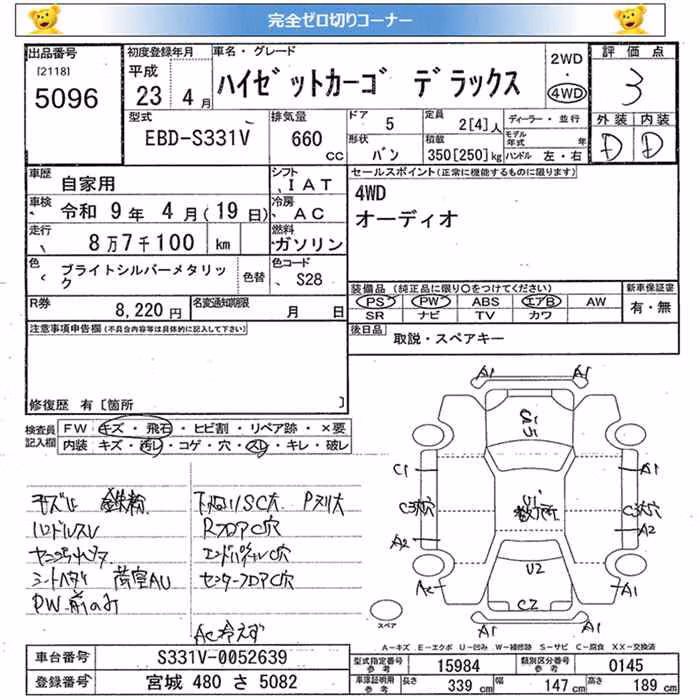 完全ゼロ切りコーナー
出品番号 初度登録年月 車名・グレード 2WD・4WD 評価点
[2118] 5096 平成 23 4月 ハイゼットカーゴ デラックス 3
型式 排気量 ドア 5 定員 2[4]人 ディーラー・並行 外装 内装
EBD-S331V 660 CC 形状 バン 積載 350[250]kg モデル年式 年 ハンドル 左・右 D D
車歴 自家用 シフト IAT セールスポイント(正常に機能するものに限ります)
車検 令和 9年 4月(19日) 冷房 AC 4WD
走行 8万7千100 km 燃料 ガソリン オーディオ
色 ブライトシルバーメタリック 色替 色コード S28
装備品 (純正品に限り○をつけてください) 新車保証書
R券 8,220円 名変通知期限 月 日 PS PW ABS エアB AW 有・無
SR ナビ TV カワ
注意事項申告欄(不具合内容等は具体的に記入して下さい) 後日品 取説・スペアキー
修復歴 有[箇所 ]
検査員記入欄 FW キズ・飛石・ヒビ割・リペア跡・×要
内装 キズ・汚レ・コゲ・穴・スレ・キレ・破レ
鉄粉
ハンドルスレ RフロアC穴
エンドパネルC穴
荷室AU センターフロアC穴
PW前のみ
AC冷えず
A1 A1
C1 A1
A2 A2
U2
Ac A1
C2
A1 A1
スペア
A-キズ E-エクボ U-凹み W-補修跡 S-サビ C-腐食 XX-交換済
車台番号 S331V-0052639 型式指定番号 参考 15984 類別区分番号 参考 0145
登録番号 宮城 480 さ 5082 車庫証明用 参考 長さ 339 cm 幅 147 cm 高さ 189 cm